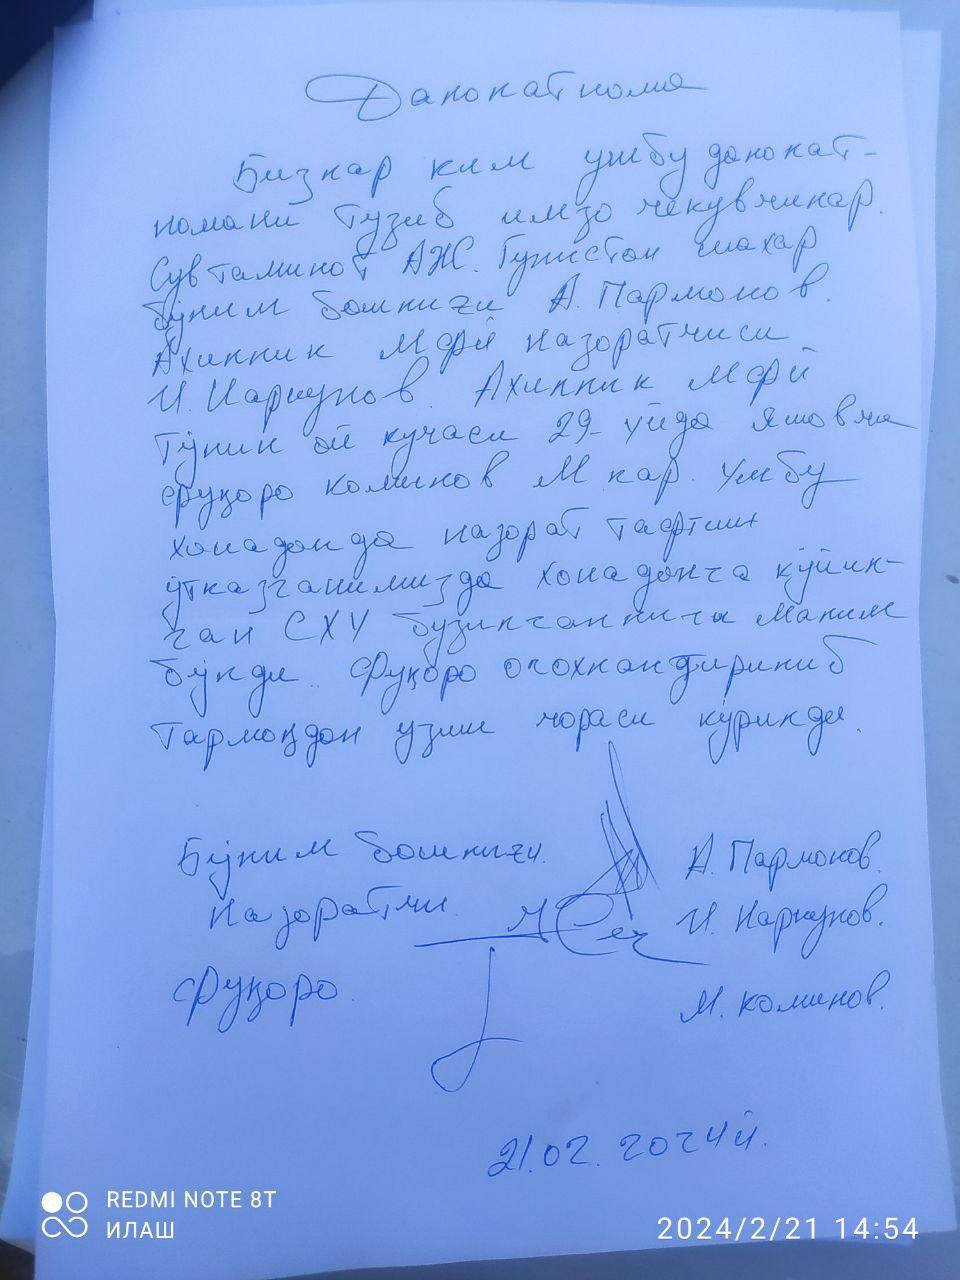 Далолатнома
Бизлар ким ушбу далолат-
номани тузиб имзо чекувчилар.
Сувтаминот АЖ. Гулистон шахар
бўлим бошлиғи А. Пармонов.
Ахиллик МФЙ назоратчиси
И. Наркулов. Ахиллик МФЙ
Тўлин ой кучаси 29-уйда яшовчи
фуқоро комилов М лар. Ушбу
хонадонда назорат тафтиш
ўтказганимизда хонадонга қўйил-
ган СХУ бузилганлиги малим
бўлди. Фуқоро огохлантирилиб
тармоқдан узиш чораси кўрилди.
Бўлим бошлиғи.
А. Пармонов.
Назоратчи.
И. Наркулов.
Фуқоро.
М. комилов.
21.02.2024й.
REDMI NOTE 8T
ИЛАШ
2024/2/21 14:54